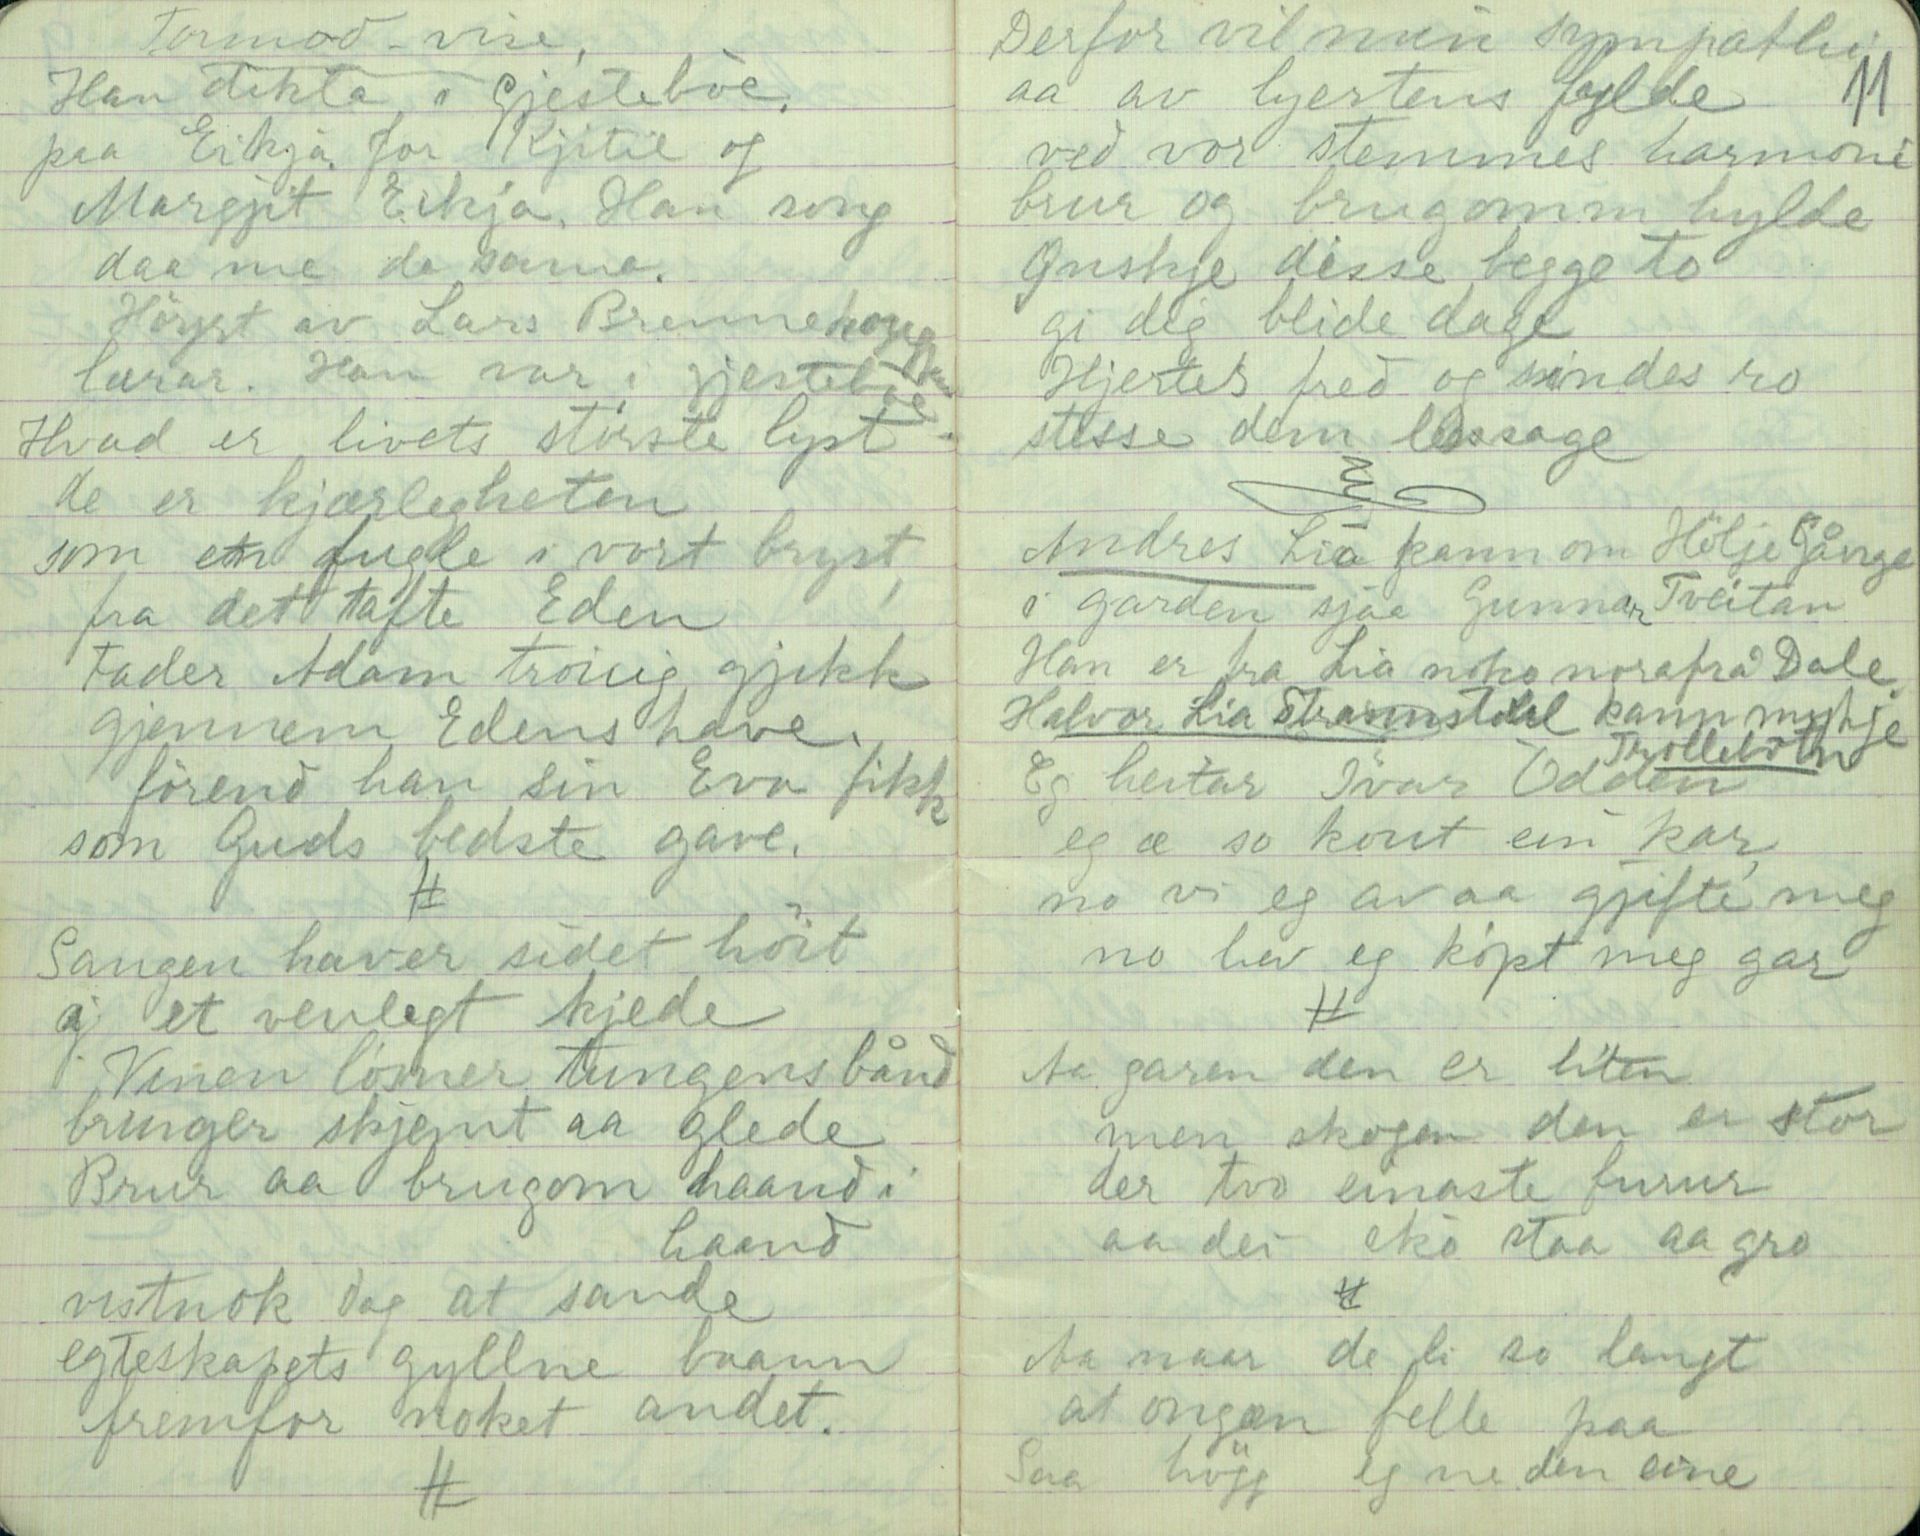 Tormod-vise,
Han dikta i gjestebòe,
paa Eikja, for Kjitil og
Margjit Eikja. Han song
daa me da sama.
Höyrt av Lars Brennehoug
lærar. Han var i gjestebòe
Hvad er livets störste lyst
de er kjærlegheten
som en fugle i vort bryst,
fra det tafte Eden
Fader Adam troiug gjekk
gjennem Edens have,
förend han sin Eva fikk
som Guds bedste gave.
#
Sangen haver sidet höit
aj et venlegt kjede
Vinen lösner tungens bånd
bringer skjemt aa glede
Brur aa brugom haand i
haand
vistnok dog at sande
egteskapets gyllne baann
fremfor noket andet.
#
11
Derfor vil min sympathi
aa av hjertens fylde
ved vor stemmes harmoni
brur og brugomm hylde
Ønskje disse begge to
gi dig blide dage
Hjertes fred og sindes ro
stesse dem ledsage
Andres Lia kann om Hölje Gånge
i garden sjåa Gunnar Tveitan
Han er fra Lia noko norafrå Dale.
Halvor Lia Strannstdul kann mykje
Trollebotn
Eg heitar Ivar Odden
eg æ so kout ein kar
no vi eg av aa gjifte meg
no hev eg köpt meg gar
#
Aa garen den er liten
men skogen den er stor
der tvo einaste furur
aa dei sko staa aa gro
#
Aa naar de li so langt
at ongan felle paa
Saa högg eg ne den eine